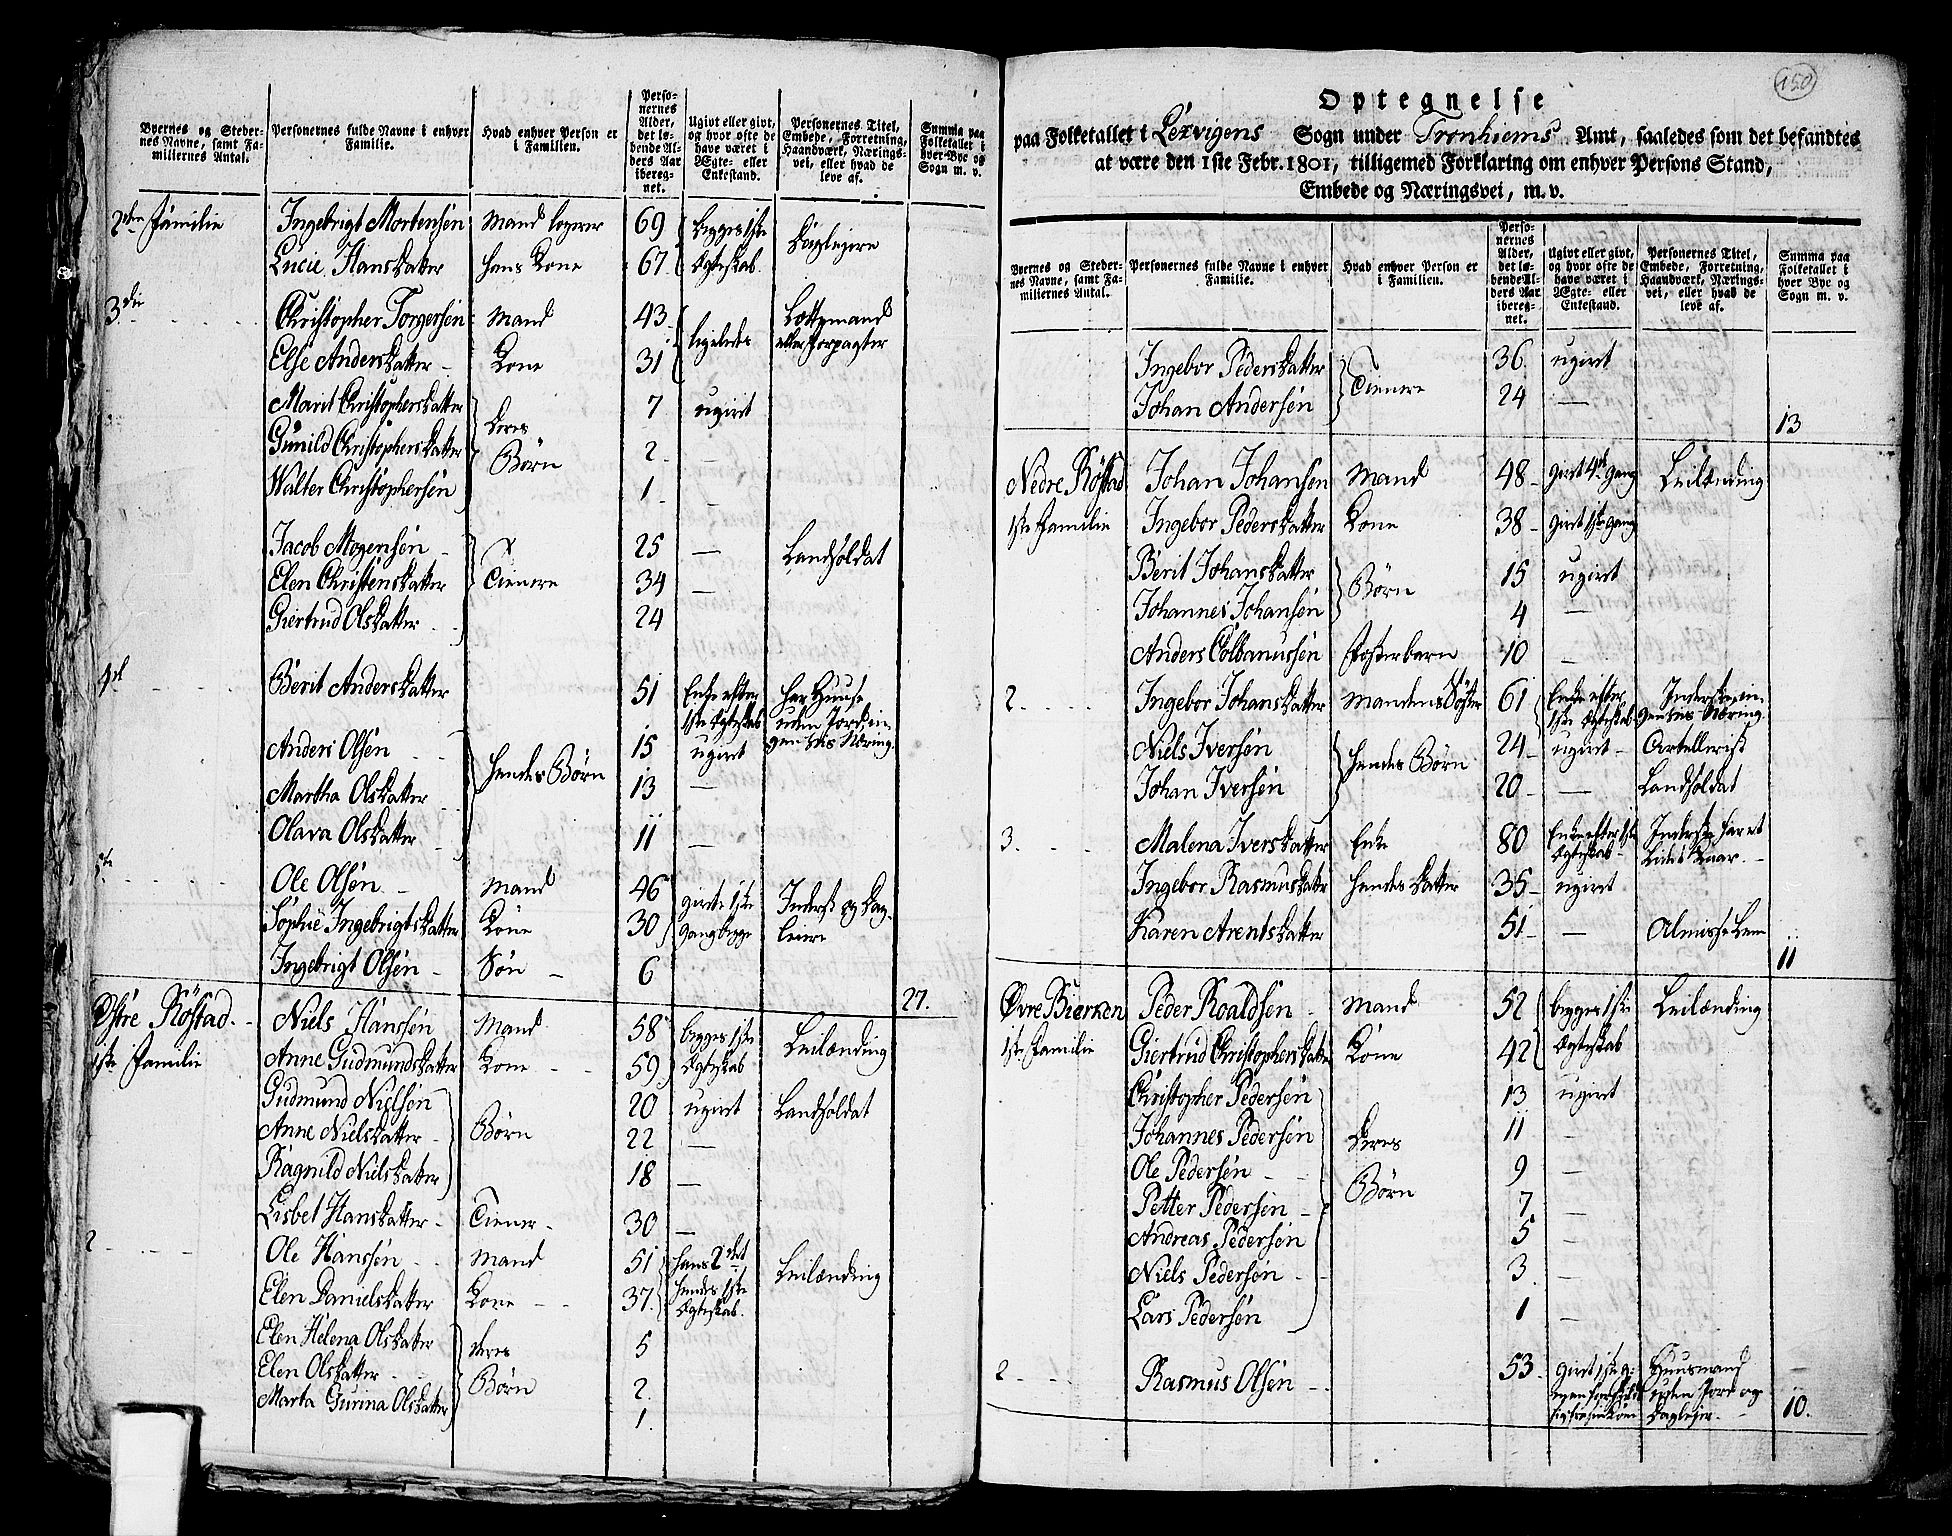 Byernes og Steder-
nes Navne, samt Fa-
miliernes Antal.
Personernes fulde Navne i enhver
Familie.
Hvad enhver Person er
i Familien.
Perso-
nernes
Alder,
det lø-
bende Al-
ders Aar
ibereg-
net.
Ugivt eller givt,
og hvor ofte de
have været i
Ægte- eller
Enkestand.
Personernes Titel,
Embede, Forretning,
Haandværk, Nærings-
vei, eller hvad de
leve af.
Summa paa
Folketallet i
hver Bye og
Sogn m. v.
2den Familie Ingebrigt Mortensøn Mand logerer 69 begges 1ste Daglejere
Lucie Hansdatter hans Kone 67. Ægteskab.
3die Christopher Torgersøn Mand 43 ligeledes Lottsmand
Else Andersdatter Kone 31 eller Forpagter
Marit Christophersdatter Deres 7 ugivt
Gunild Christophersdatter Børn 2 —
Walter Christophersøn 1 —
Jacob Mogensøn 25 — Landsoldat
Elen Christensdatter Tienere 34 —
Giertrud Olsdatter 24
4de Berit Andersdatter 51 Enke efter har Huuse
1ste Ægteskab uden Jord, in-
gen vis Næring.
Anders Olsøn 15 ugivt
Martha Olsdatter hendes Børn 13 —
Olava Olsdatter 11 —
5te Ole Olsøn Mand 46 givte 1ste Inderst og Dag-
Sophie Ingebrigtsdatter Kone 30 Gang begge leiere
Ingebrigt Olsøn Søn 6
27.
Østre Röstad Niels Hansøn Mand 58 begges 1ste Leilænding
1ste Familie Anne Gudmundsdatter Kone 59 Ægteskab
Gudmund Nielsøn 20 ugivt Landsoldat
Anne Nielsdatter Børn 22 —
Ragnild Nielsdatter 18 —
Lisbet Hansdatter Tiener 30 —
2 Ole Hansøn Mand 51 hans 2det Leilænding
Elen Danielsdatter Kone 37. hendes 1ste
Ægteskab.
Elen Helena Olsdatter deres 5
Elen Olsdatter Børn 2.
Marta Gurina Olsdatter 1.
150
Optegnelse
paa Folketallet i Lexvigens Sogn under Tronhiems Amt, saaledes som det befandtes
at være den 1ste Febr. 1801, tilligemed Forklaring om enhver Persons Stand,
Embede og Næringsvei, m. v.
Byernes og Steder-
nes Navne, samt Fa-
miliernes Antal.
Personernes fulde Navne i enhver
Familie.
Hvad enhver Person er
i Familien.
Perso-
nernes
Alder,
det lø-
bende Al-
ders Aar
ibereg-
net.
Ugivt eller givt,
og hvor ofte de
have været i
Ægte- eller
Enkestand.
Personernes Titel,
Embede, Forretning,
Haandværk, Nærings-
vei, eller hvad de
leve af.
Summa paa
Folketallet i
hver Bye og
Sogn m. v.
Ingebor Pedersdatter Tienere 36 ugivt
Johan Andersøn 24 —
13
Nedre Röstad Johan Johansøn Mand 48 givt 4de Gang Leilænding
1ste Familie Ingebor Pedersdatter Kone 38 givt 1ste Gang
Berit Johansdatter Børn 15 ugivt
Johannes Johansøn 4 —
Anders Colbanussøn Fosterbarn 10 —
2 Ingebor Johansdatter Mandens Søster 61 Enke efter Inderste, in-
1ste Ægteskab gen vis Næring
Niels Iversøn hendes Børn 24 ugivt Artellerist
Johan Iversøn 20 — Landsoldat
3. Malena Iversdatter Enke 80 Enke efter 1ste Inderste, har et
Ægteskab
Ingebor Rasmusdatter hendes datter 35 ugivt
Karen Arentsdatter 51 — Almisse Lem
11
Øvre Bierken Peder Roaldsøn Mand 52 begges 1ste Leilænding
1ste Familie Giertrud Christophersdatter Kone 42 Ægteskab
Christopher Pedersøn 13 ugivt
Johannes Pedersøn Deres 11 —
Ole Pedersøn 9 —
Petter Pedersøn Børn 7 —
Andreas Pedersøn 5 —
Niels Pedersøn 3 —
Lars Pedersøn 1 —
2 Rasmus Olsøn 53 givt 1ste g. Huusmand
uden Jord og
Daglejer 10.